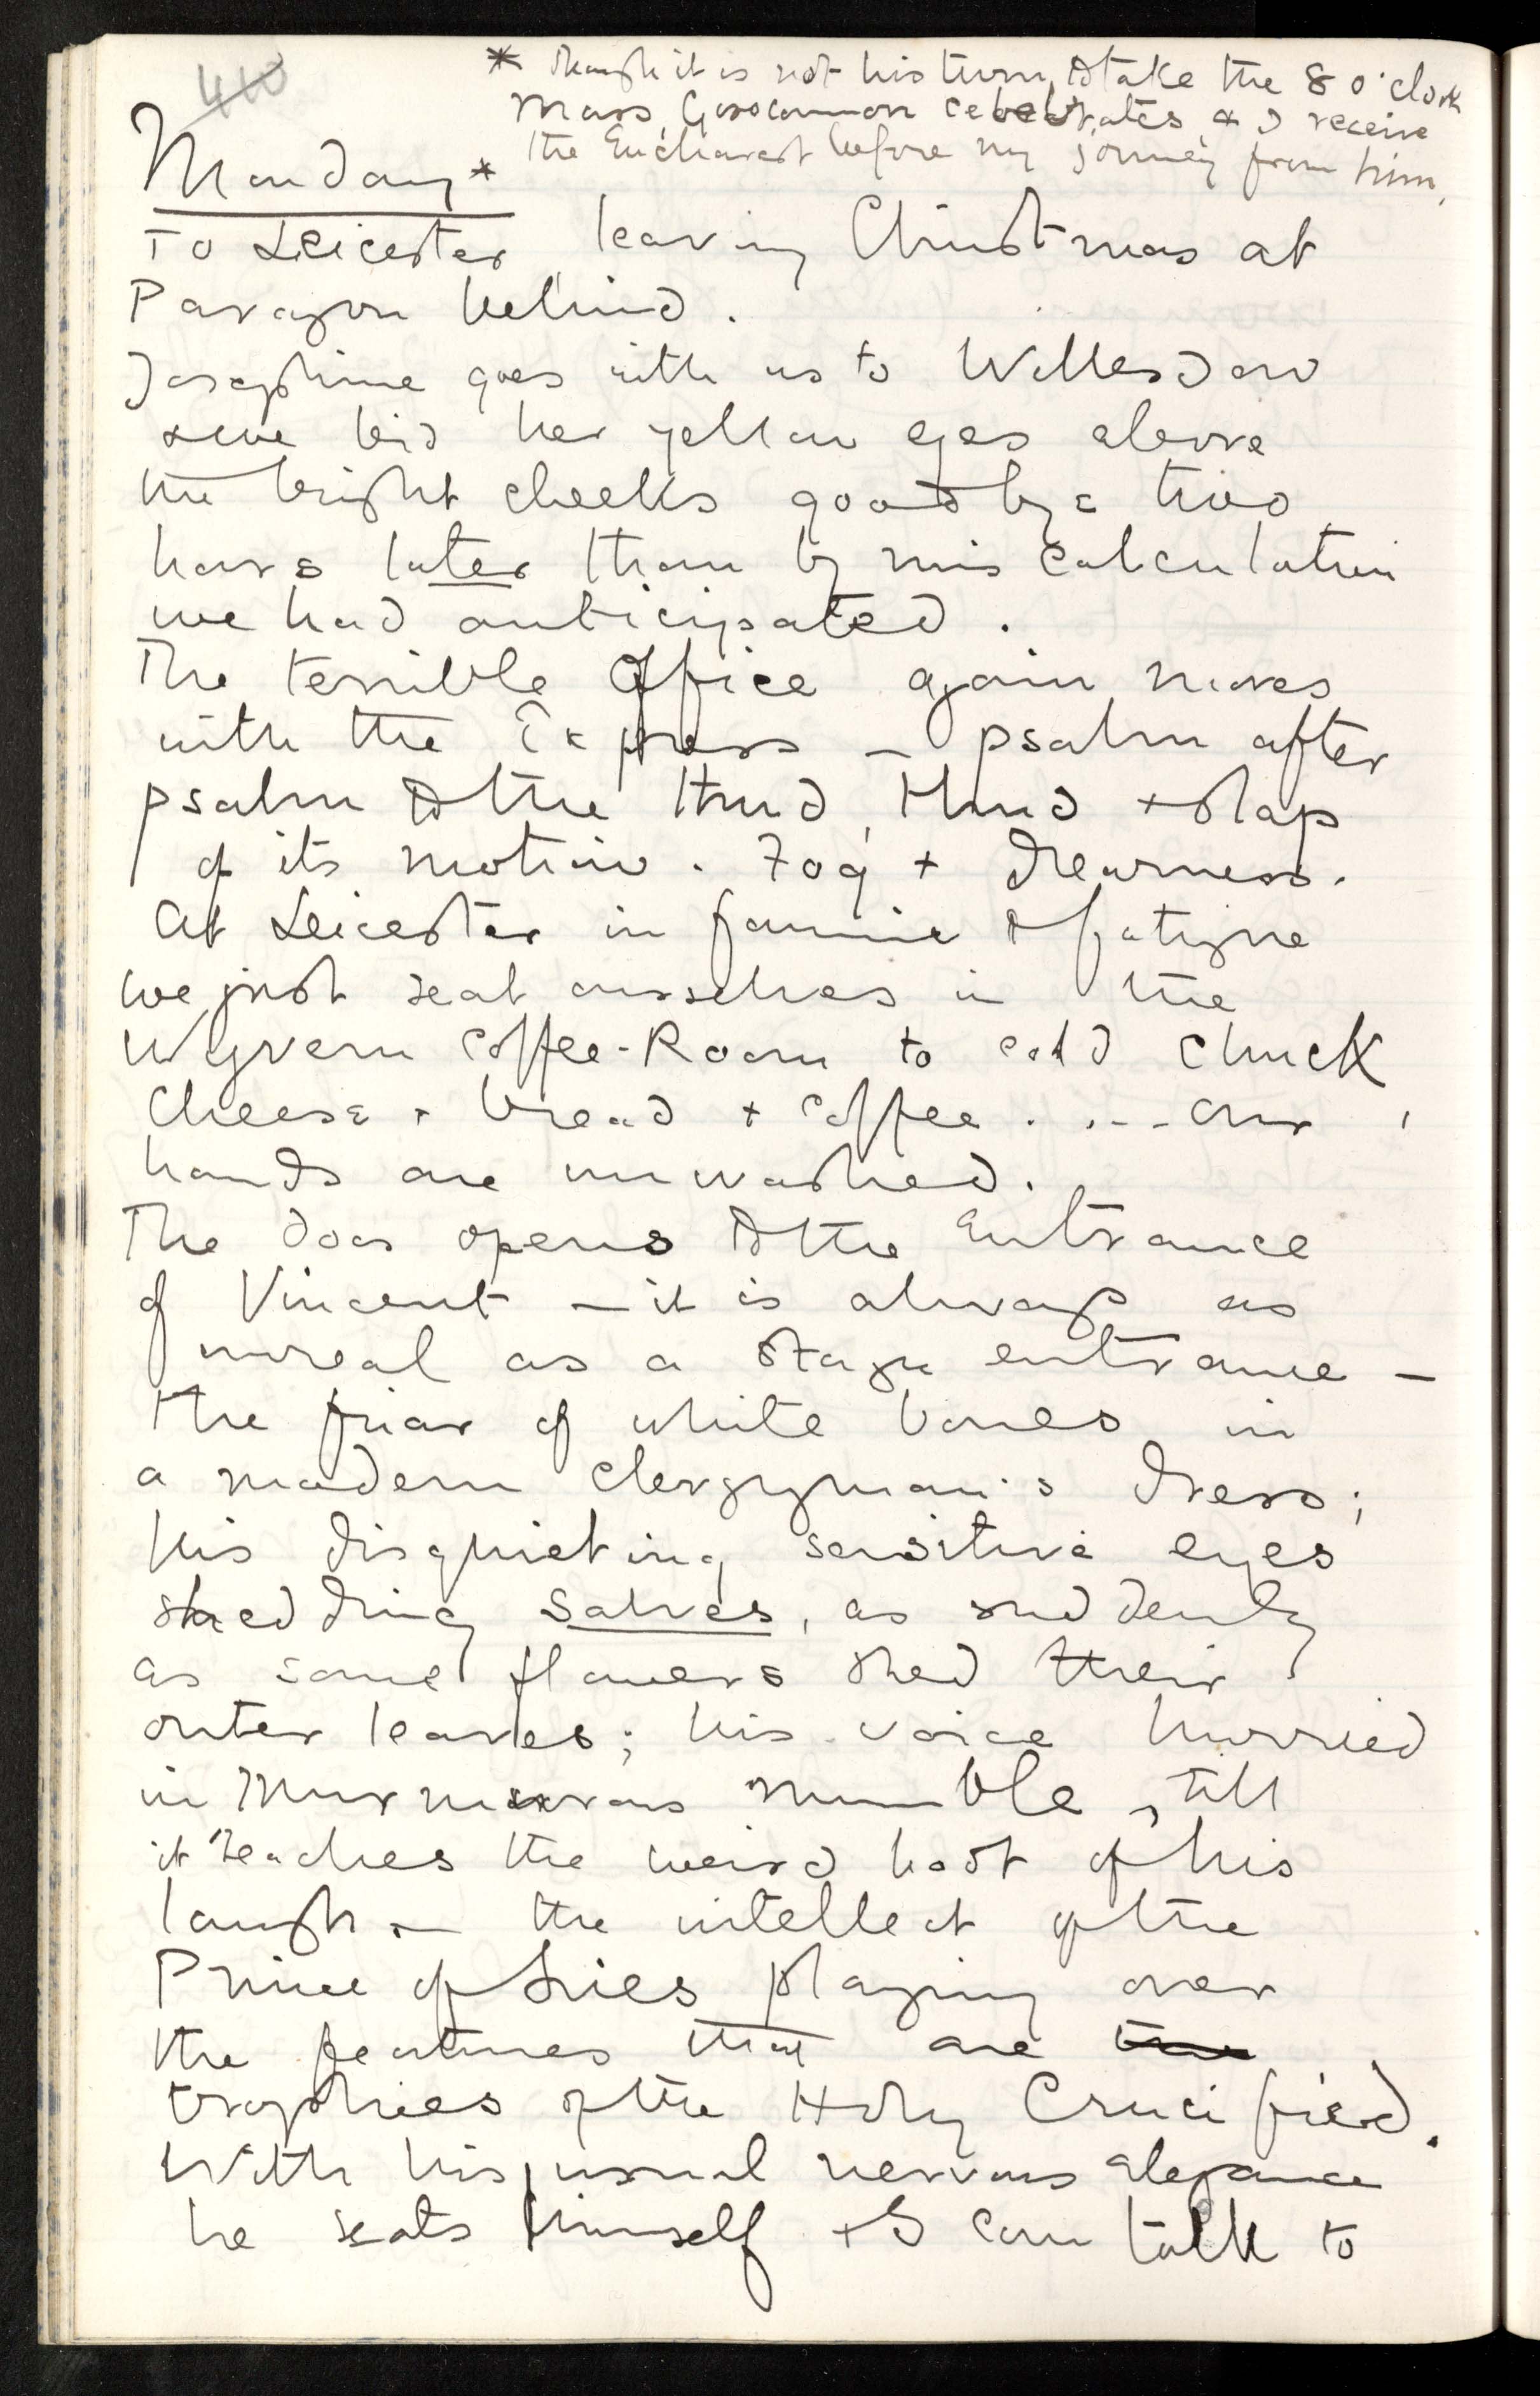 410
* though it is not his turn to take the 8 o'clock
Mass, Goscannon celebrates & I receive
the Eucharist before my journey from him.
Monday *
To Leicester leaving Christmas at
Paragon behind.
Josephine goes with us to Willesden
& we bid her yellow eyes above
the bright cheeks goodbye two
hours later than by mis calculation
we had anticipated.
The terrible Office again moves
with the Express — psalm after
psalm to the thud, thud & slap
of its motion. Fog & drearness.
At Leicester in famine & fatigue
we just seat ourselves in the
Wyvern Coffee-Room to cold chuck,
Cheese & bread & coffee . . . . our
hands are unwashed.
The door opens to the Entrance
of Vincent — it is always as
unreal as a stage entrance —
the friar of white bones in
a modern clergyman's dress;
his disquieting sensitive eyes
shedding salves, as suddenly
as some flowers shed their
outer leaves; his voice hurried
in murmurous mumble, till
it reaches the weird hoot of his
laugh — the intellect of the
Prince of Lies playing over
the features that are
trophies of the Holy Crucified.
With his usual nervous elegance
he seats himself & I can talk to